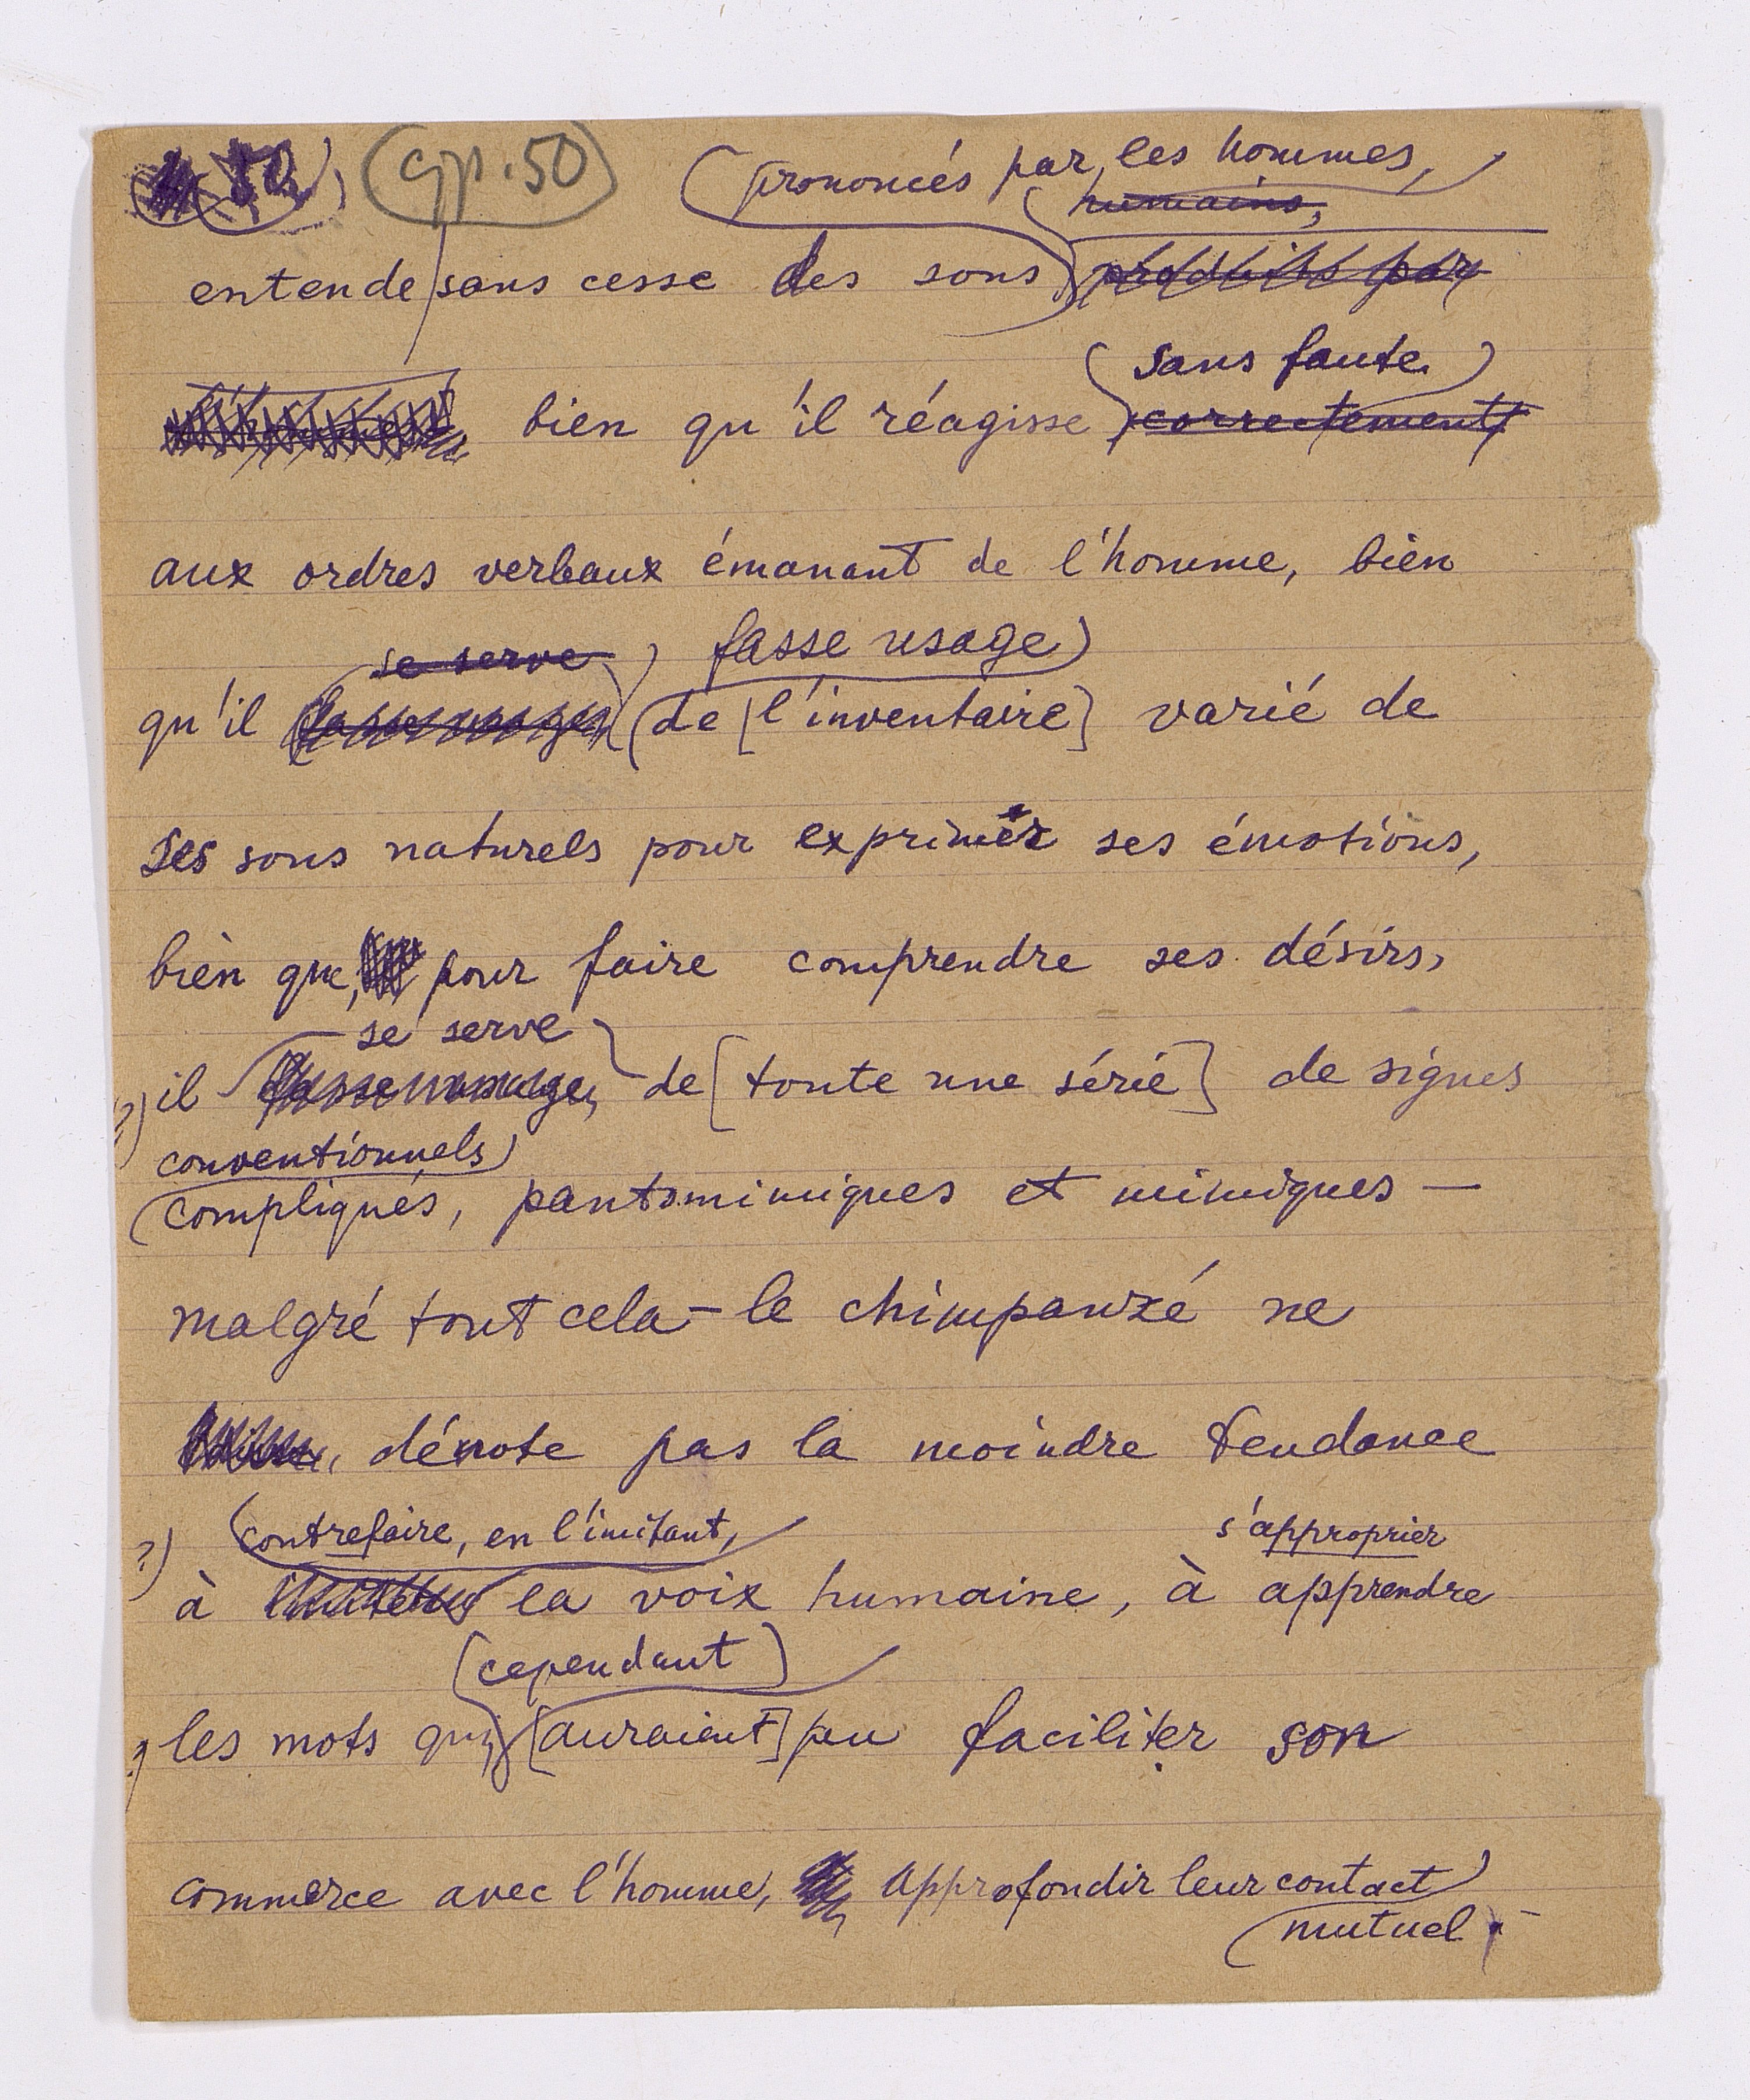 стр. 50
prononcés par les hommes,
humains,
entende sans cesse des sons produits par
sans faute
bien qu'il réagisse correctement
aux ordres verbaux émanant de l'homme, bien
se serve fasse usage
qu'il fasse usage de [l'inventaire] varié de
ses sons naturels pour exprimer ses émotions,
bien que, pour faire comprendre ses désirs,
se serve
?) il fasse usage de [toute une série] de signes
conventionnels
compliqués, pantomimiques et mimiques —
malgré tout cela – le chimpanzé ne
dénote pas la moindre tendance
?) contrefaire, en l'imitant, s'approprier
à la voix humaine, à apprendre
[cependant]
les mots qui, [auraient] pu faciliter son
commerce avec l'homme, approfondir leur contact
mutuel.